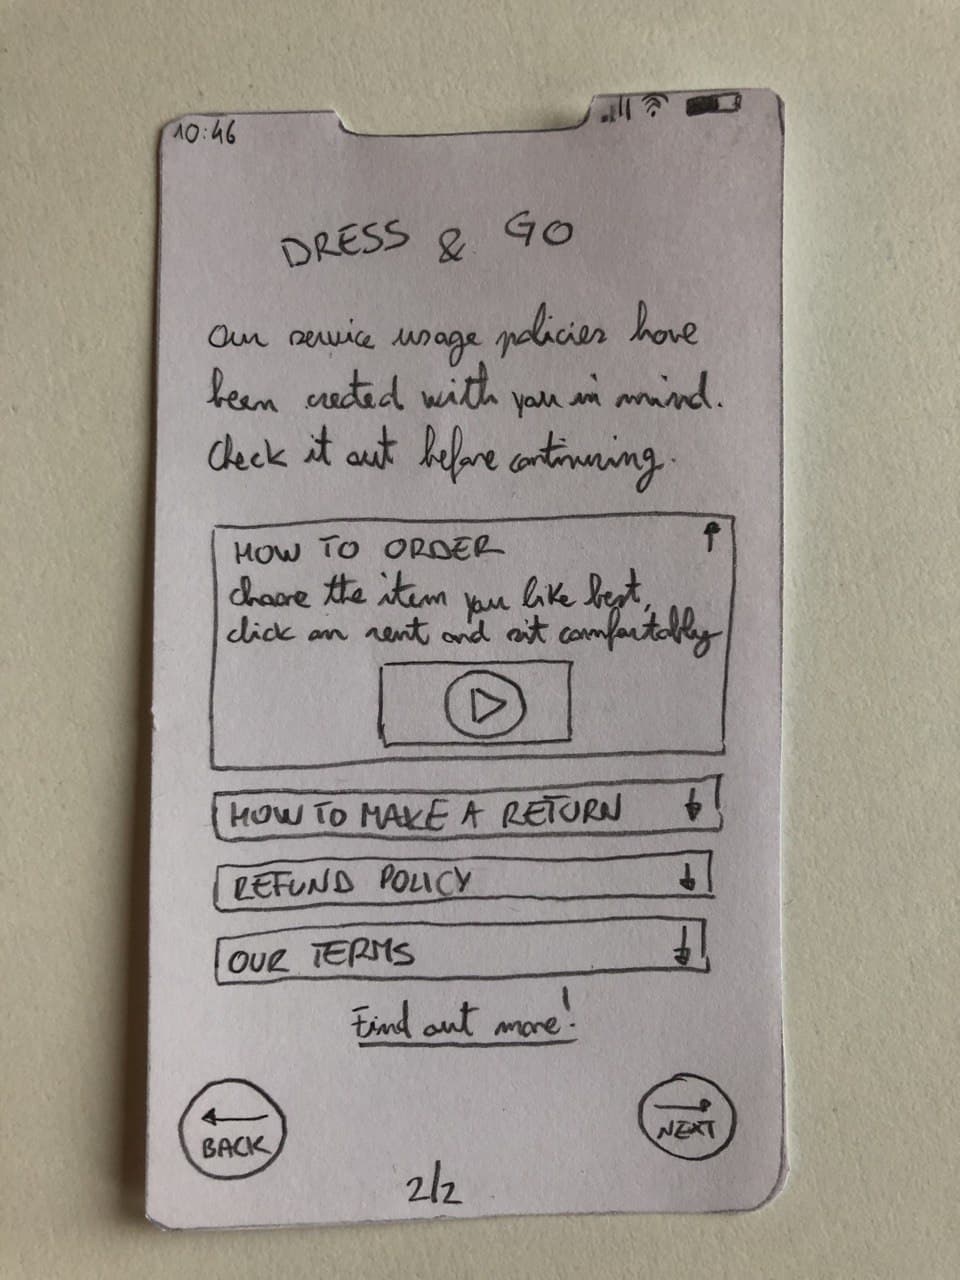 10:46
DRESS & GO
Our service usage policies have
been created with you in mind.
Check it out before continuing.
HOW TO ORDER
choose the item you like best,
click on rent and sit comfortably
HOW TO MAKE A RETURN
REFUND POLICY
OUR TERMS
Find out more!
BACK
NEXT
2/2